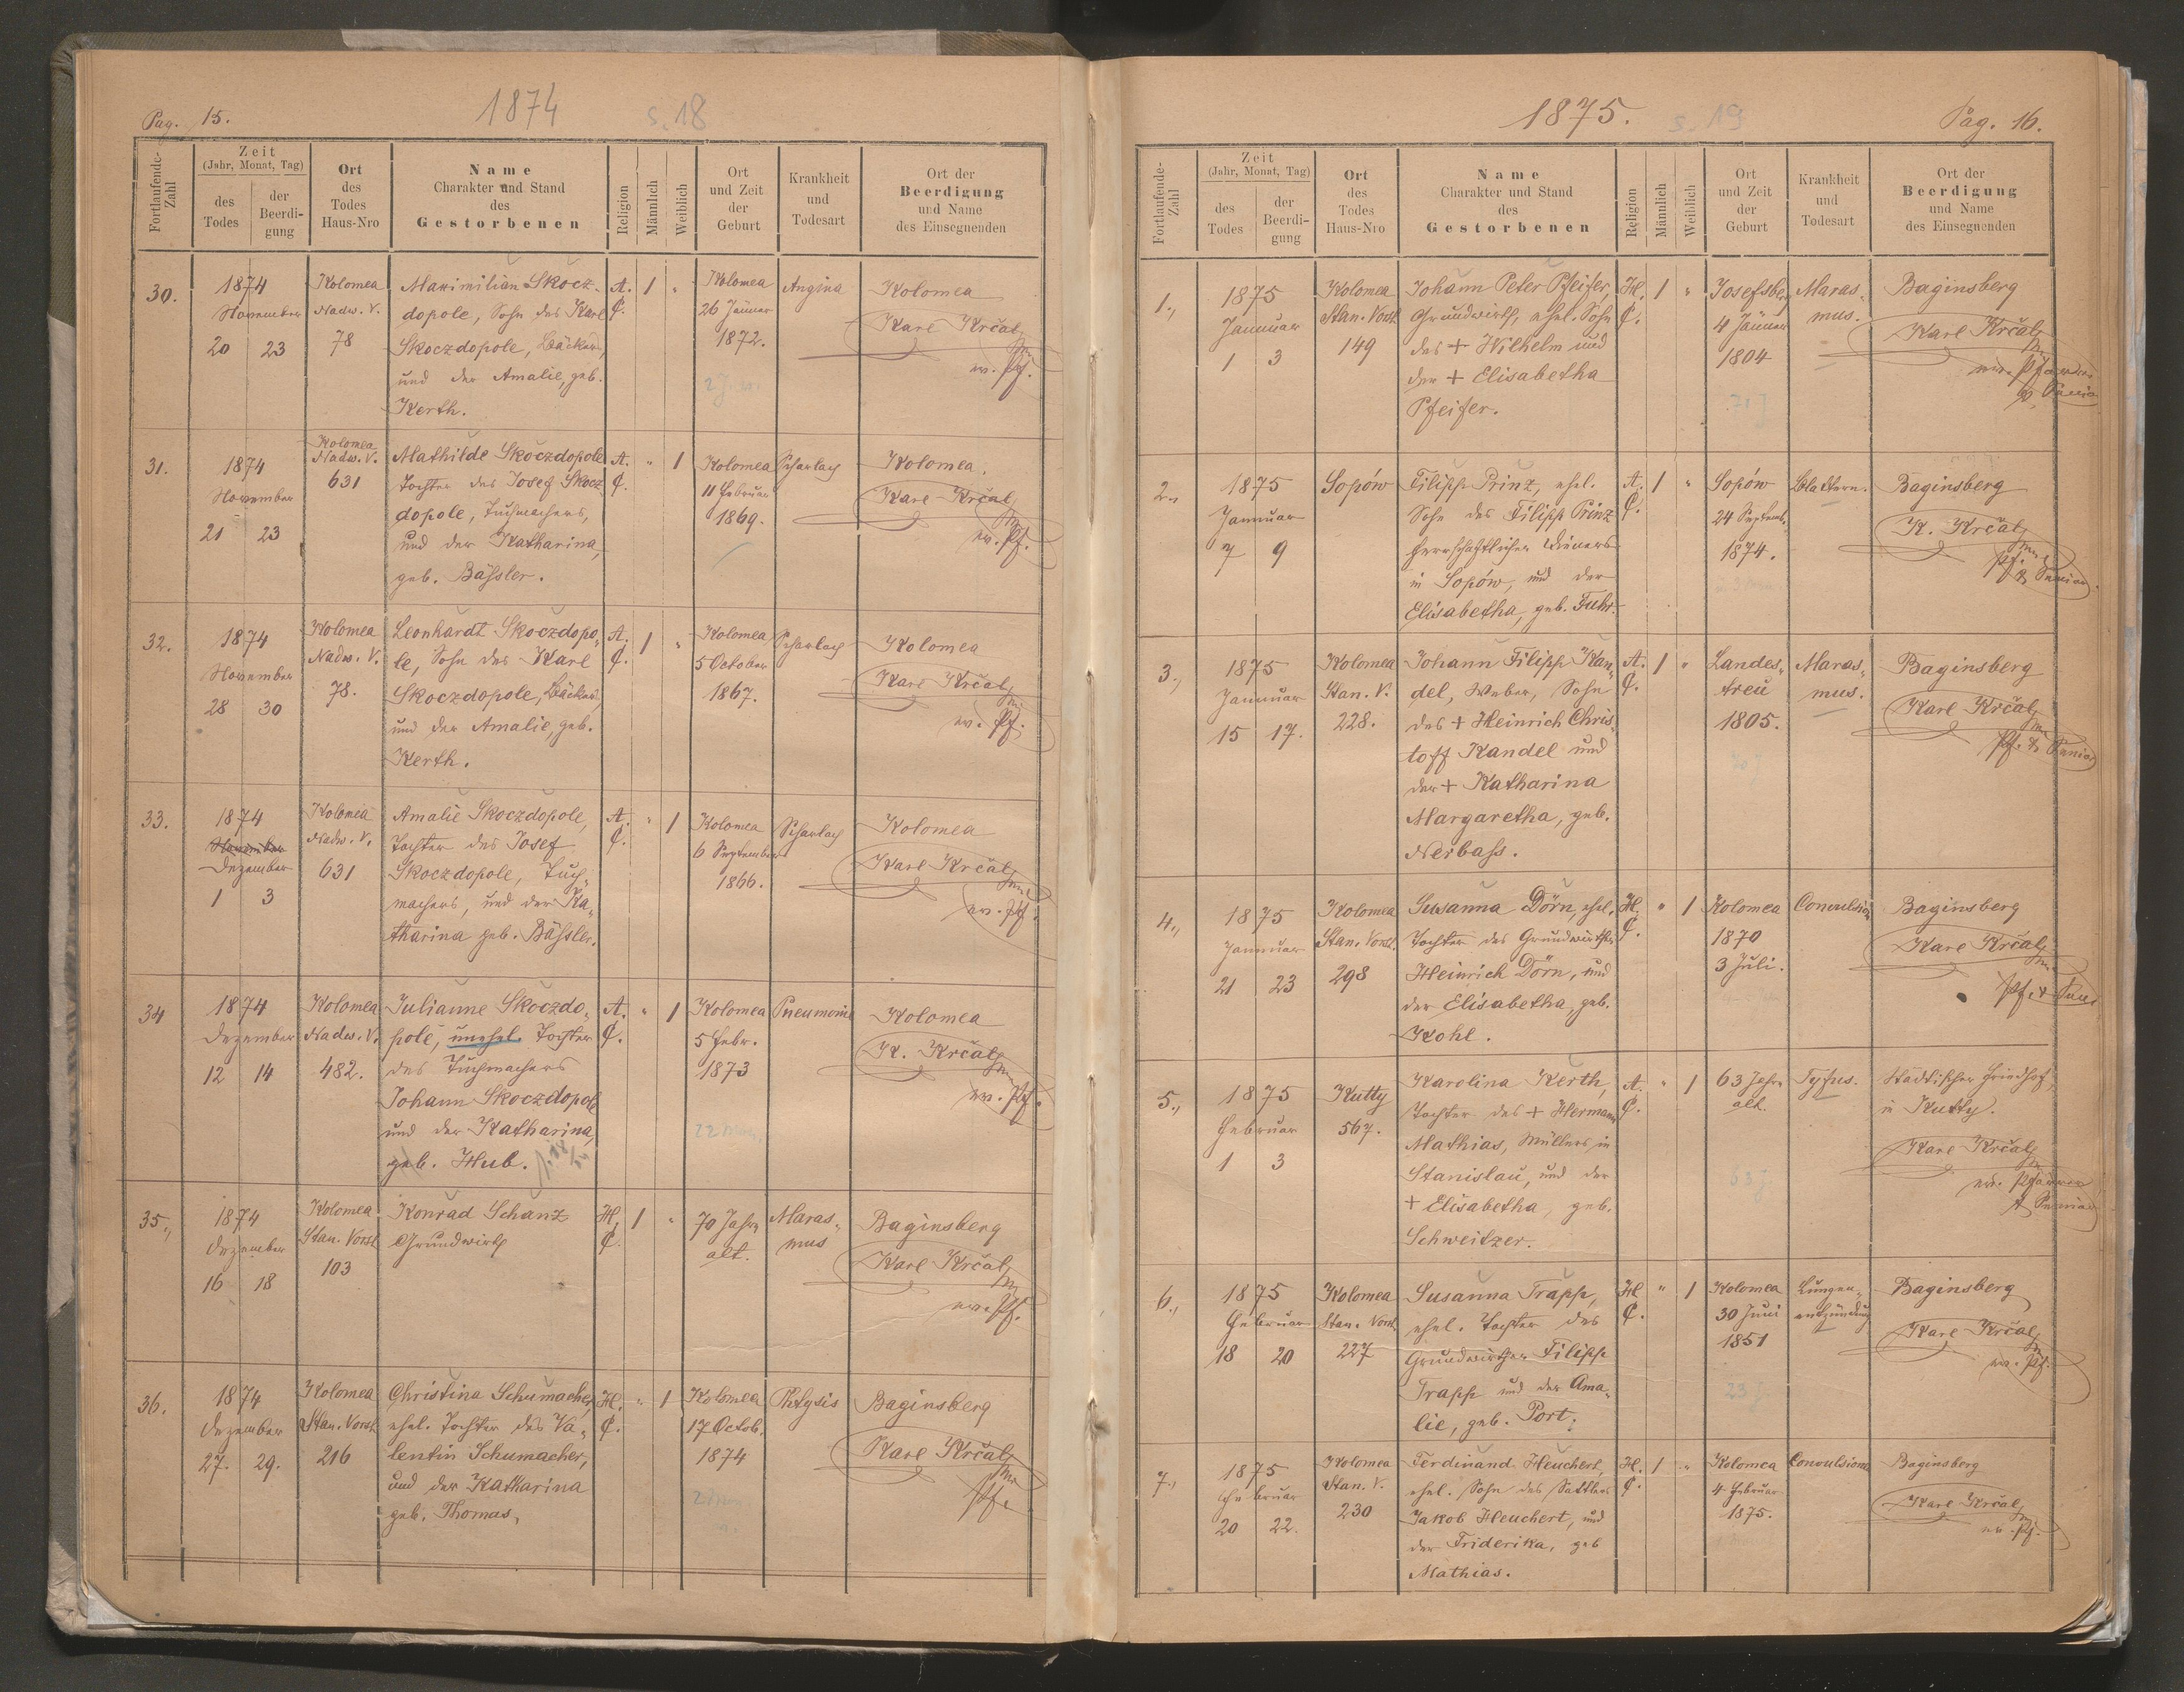 Pag. 15.
1874
s. 18
Fortlaufende-Zahl
Zeit
(Jahr, Monat, Tag)
des Todes
der Beerdi-gung
Ort des Todes Haus-Nro
Name
Charakter und Stand
des
Gestorbenen
Religion
Männlich
Weiblich
Ort und Zeit der Geburt
Krankheit und Todesart
Ort der
Beerdigung
und Name
des Einsegnenden
30.
1874
November
20 23
Kolomea
Nadw. V.
78
Maximilian Skocz-
dopole, Sohn des Karl
Skoczdopole, Bäckers,
und der Amalie, geb.
Kerth.
A.
C.
1 "
Kolomea
26 Jänner
1872.
Angina
Kolomea
Karl Krčal
ev. Pf.
31.
1874
November
21 23
Kolomea
Nadw. V.
631
Mathilde Skoczdopole
Tochter des Josef Skocz
dopole, Tuchmachers,
und der Katharina,
geb. Bässler.
A.
C.
" 1
Kolomea
11 Februar
1869.
Scharlach
Kolomea.
Karl Krčal
ev. Pf.
32.
1874
November
28 30
Kolomea
Nadw. V.
78.
Leonhardt Skoczdopo-
le, Sohn des Karl
Skoczdopole, Bäckers,
und der Amalie, geb.
Kerth.
A.
C.
1 "
Kolomea
5 October
1867.
Scharlach
Kolomea
Karl Krčal
ev. Pf.
33.
1874
November
Dezember
1 3
Kolomea
Nadw. V.
631
Amalie Skoczdopole,
Tochter des Josef
Skoczdopole, Tuch-
machers, und der Ka-
tharina geb. Bässler.
A.
C.
" 1
Kolomea
6 September
1866.
Scharlach
Kolomea
Karl Krčal
ev. Pf.
34
1874
Dezember
12 14
Kolomea
Nadw. V.
482.
Julianne Skoczdo-
pole, unehel. Tochter
des Tuchmachers
Johann Skoczdopole
und der Katharina,
geb. Hub.
A.
C.
" 1
Kolomea
5 Febr.
1873
Pneumonie
Kolomea
K. Krčal
ev. Pf.
35.,
1874
Dezember
16 18
Kolomea
Stan. Vorst
103
Konrad Schanz
Grundwirth
H.
C.
1 "
70 Jahre
alt.
Maras-
mus
Baginsberg
Karl Krčal
ev. Pf.
36.
1874
Dezember
27. 29.
Kolomea
Stan. Vorst
216
Christina Schumacher,
ehel. Tochter des Va-
lentin Schumacher,
und der Katharina
geb. Thomas,
H.
C.
" 1
Kolomea
17 Octob.
1874
Phtysis
Baginsberg
Karl Krčal
Pf.
1875.
s. 19
Pag. 16.
Fortlaufende-Zahl
Zeit
(Jahr, Monat, Tag)
des Todes
der Beerdi-gung
Ort des Todes Haus-Nro
Name
Charakter und Stand
des
Gestorbenen
Religion
Männlich
Weiblich
Ort und Zeit der Geburt
Krankheit und Todesart
Ort der
Beerdigung
und Name
des Einsegnenden
1.,
1875
Jannuar
1 3
Kolomea
Stan. Vorst
149
Johann Peter Pfeifer,
Grundwirth, ehel. Sohn
des + Wilhelm und
der + Elisabetha
Pfeifer.
H.
C.
1 "
Josefsberg
4 Jänner
1804
71 J
Maras-
mus.
Baginsberg
Karl Krčal
ev. Pfarrer
& Senior
2.,
1875
Jannuar
7 9
Sopów
Filipp Prinz, ehel.
Sohn des Filipp Prinz
herrschaftlicher Dieners
in Sopów, und der
Elisabetha, geb. Fuhr.
A.
C.
1 "
Sopów
24 Septemb.
1874.
Blattern.
Baginsberg
K. Krčal
Pf.
& Senior.
3.,
1875
Jannuar
15 17.
Kolomea
Stan. V.
228.
Johann Filipp Kan-
del, Weber, Sohn
des + Heinrich Chris-
toff Kandel und
der + Katharina
Margaretha, geb.
Nerbass.
A.
C.
1 "
Landes-
treu
1805.
70 J
Maras-
mus.
Baginsberg
Karl Krčal
Pf. & Senior
4.,
1875
Jannuar
21 23
Kolomea
Stan. Vorst.
298
Susanna Dörn, ehel.
Tochter des Grundwirthen
Heinrich Dörn, und
der Elisabetha, geb.
Kohl.
H.
C.
" 1
Kolomea
1870
3 Juli.
Convulsion
Baginsberg
Karl Krčal
Pf. & Seni
5.,
1875
Februar
1 3
Kutty
567.
Karolina Kerth,
Tochter des + Hermann
Mathias, Müllers in
Stanislau, und der
+ Elisabetha, geb.
Schweitzer.
A.
C.
" 1
63 Jahre
alt.
63 J
Tyfus.
Städtischer Friedhof
in Kutty.
Karl Krčal
ev. Pfarrer
& Senior
6.,
1875
Februar
18 20
Kolomea
Stan. Vorst.
227
Susanna Trapp,
ehel. Tochter des
Grundwirthen Filipp
Trapp und der Ama-
lie, geb. Port.
H.
C.
" 1
Kolomea
30 Juni
1851
23 J
Lungen-
entzündung
Baginsberg
Karl Krčal
ev. Pf.
7.,
1875
Februar
20 22.
Kolomea
Stan. V.
230
Ferdinand Heuchert,
ehel. Sohn des Sattlers
Jakob Heuchert, und
der Friderika, geb
Mathias.
H.
C.
1 "
Kolomea
4 Februar
1875.
Convulsionen
Baginsberg
Karl Krčal
ev. Pf.